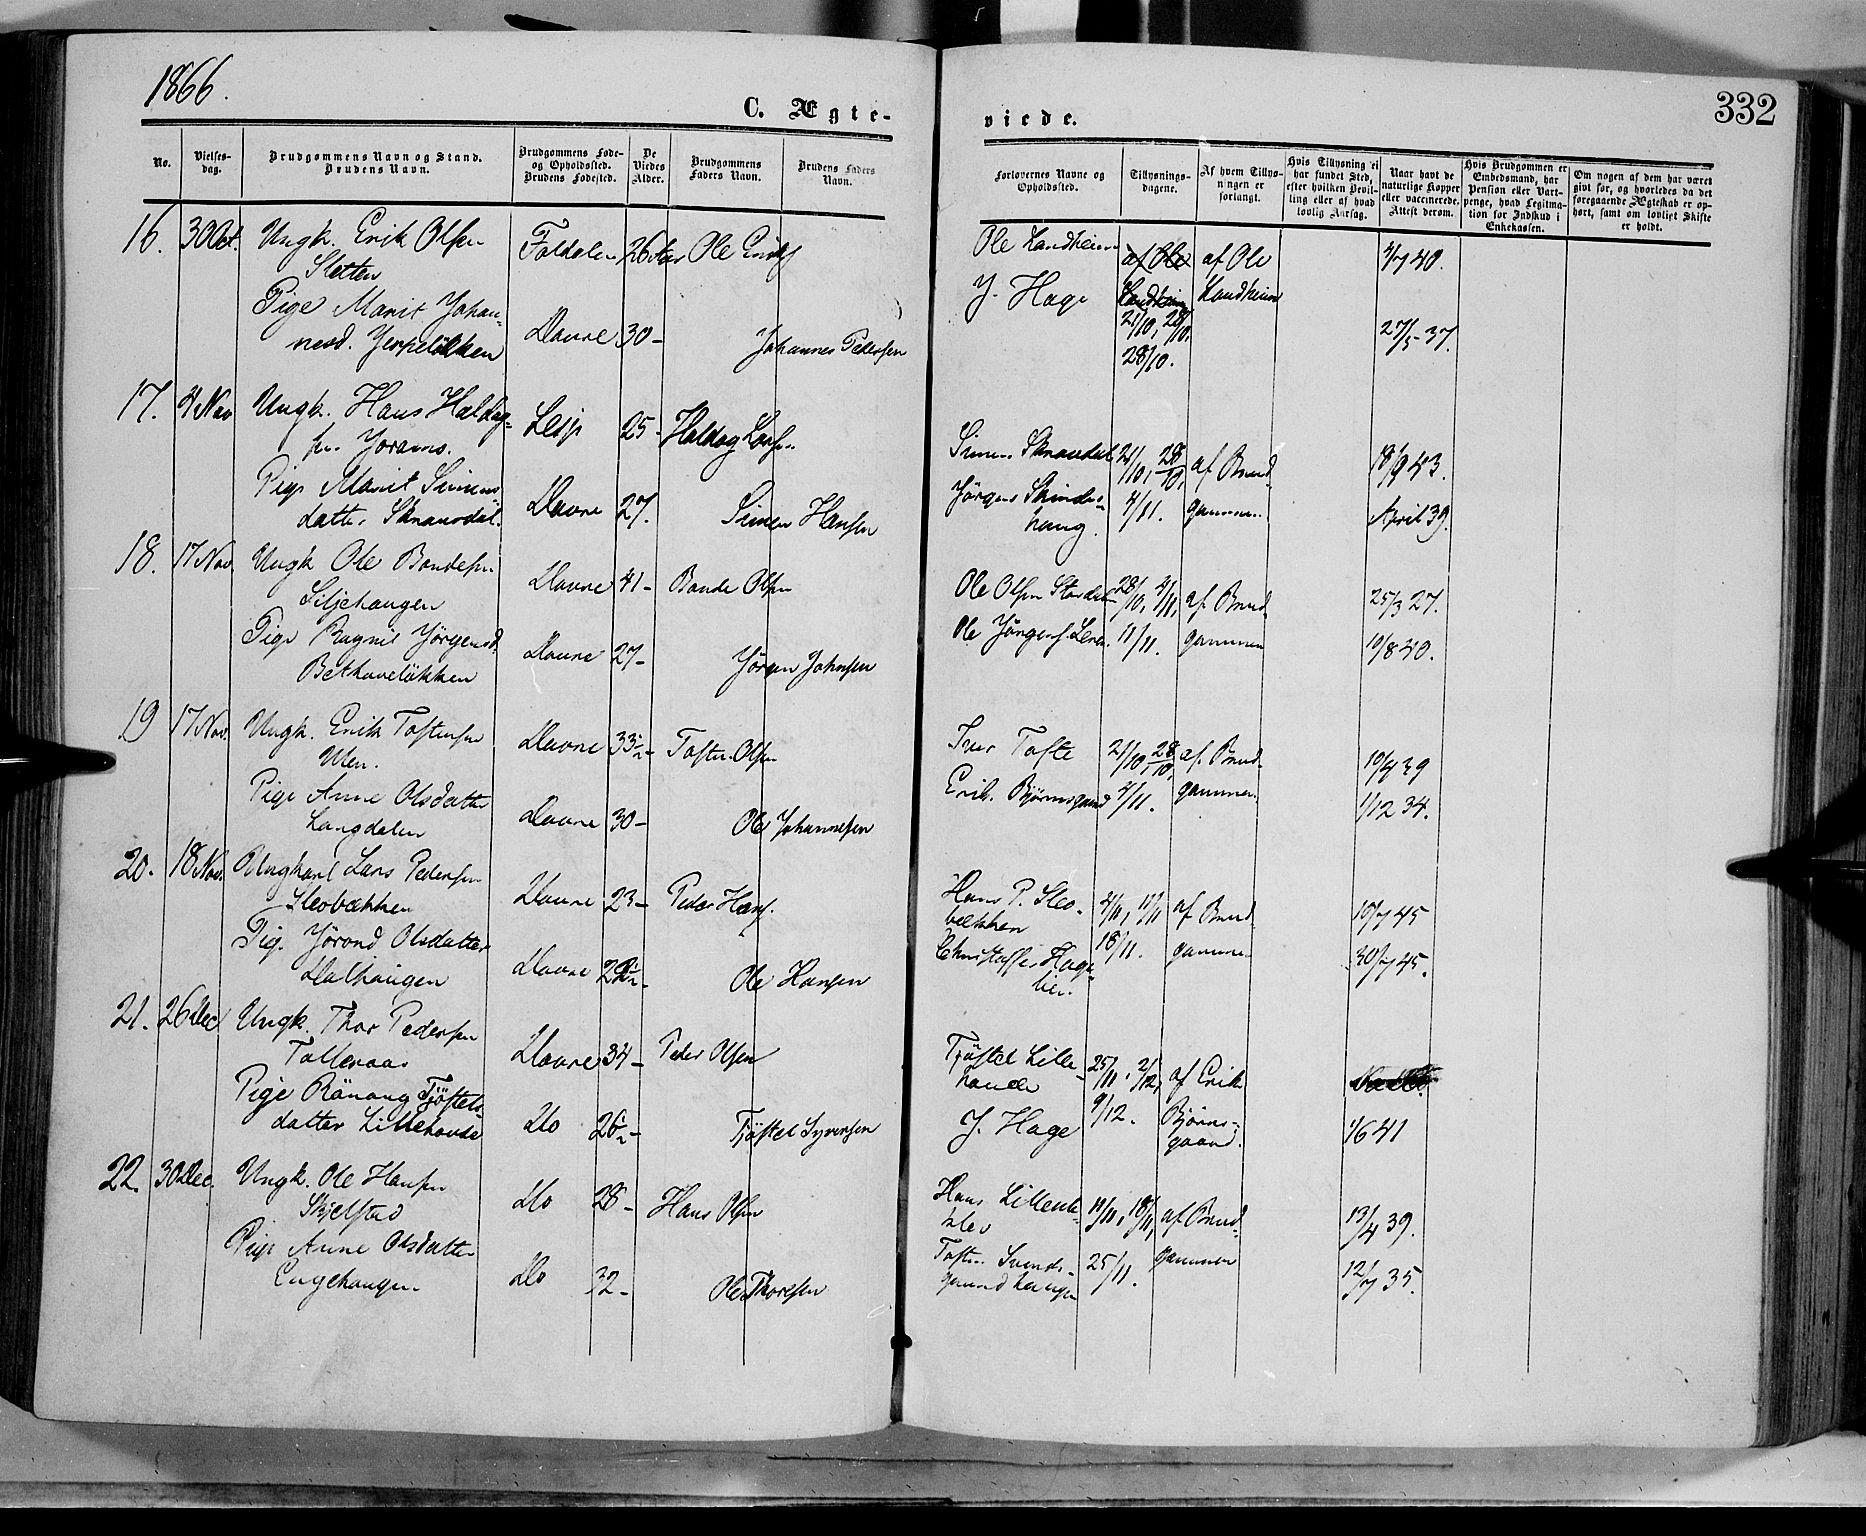 1866.
C. Ægte-
viede.
332
No.
Vielses-
dag.
Brudgommens Navn og Stand.
Brudens Navn.
Brudgommens Føde-
og Opholdssted.
Brudens Fødested.
De
Viedes
Alder.
Brudgommens
Faders Navn.
Brudens Faders
Navn.
Forlovernes Navne og
Opholdssted.
Tillysnings-
dagene.
Af hvem Tillys-
ningen er
forlangt.
Hvis Tillysning ei
har fundet Sted,
efter hvilken Bevil-
ling eller af hvad
lovlig Aarsag.
Naar havt de
naturlige Kopper
eller vaccinerede.
Attest derom.
Hvis Brudgommen er
Embedsmand, har
Pension eller Vart-
penge, hvad Legitima-
tion for Indskud i
Enkekassen.
Om nogen af dem har været
gift før, og hvorledes da det
foregaaende Ægteskab er op-
hørt, samt om lovligt Skifte
er holdt.
16. 30 Oct. Ungk. Erik Olsen Foldalen 26 Aar Ole Erikss
Sletten
Pige Marit Johan-
nesd. Jerpeløkken Dovre 30- Johannes Pedersen
Ole Landheim af Ole af Ole 4/7 40.
J. Hage Landheim Landheim
21/10, 28/10. 27/5 37.
28/10.
17. 4 Nov Ungk. Hans Haldog- Lesje 25- Haldog Larsen
sen Joramo.
Pige Marit Simens
datter Sknausdal. Dovre 27. Simen Hansen
Simen Sknausdal 21/10, 28/10, af Brud- 18/9 43.
Jørgen Skindes- 4/11. gommen. April 39.
haug.
18. 17 Nov. Ungk Ole Bondesen Dovre 41- Bonde Olsen
Siljehaugen
Pige Ragnil Jørgensd.
Bekkeløkken Dovre 27- Jørgen Johnsen
Ole Olsen 28/10, 4/11, af Brud- 25/3 27.
Ole Jørgens. 11/11. gommen 10/8 40.
19 17 Nov. Ungk. Erik Toftensen Dovre 33½- Toften Olsen
Uen.
Pige Anne Olsdatter
Langdalen Dovre 30- Ole Johannesen
Iver Tofte 21/10, 28/10, af Brud- 10/7 39
Erik Bjørnsgaard 4/11. gommen. 1/12 34.
20. 18 Nov. Ungkarl Lars Pedersen Dovre 23- Peder Hans.
Sleobækken
Pig. Jørond Olsdatter
Dalhaugen Dovre 22½- Ole Hansen
Hans P. Sleo- 4/11, 11/11 af Brud- 10/7 45
bækken 18/11. gommen
Christoffer Hage- 30/7 45.
lien.
21. 26 Dec Ungk. Thor Pedersen Dovre 34- Peder Olsen
Tolleraas
Pige Rönaug Tjøstels-
datter Lillehovde Do 26½- Tjøstel Syversen
Tjøstel Lille- 25/11, 2/12, af Erik
hovde 9/12. Bjørns-
J. Hage gaard. 1/6 41
22. 30 Dec. Ungk. Ole Hansen Do 28- Hans Olsen
Skjelstad
Pige Anne Olsdatter
Engehaugen Do 32- Ole Thoresen
Hans Lillenk- 11/11, 18/11, af Brud- 13/4 39.
klev 25/11. gommen 12/7 35.
Toften